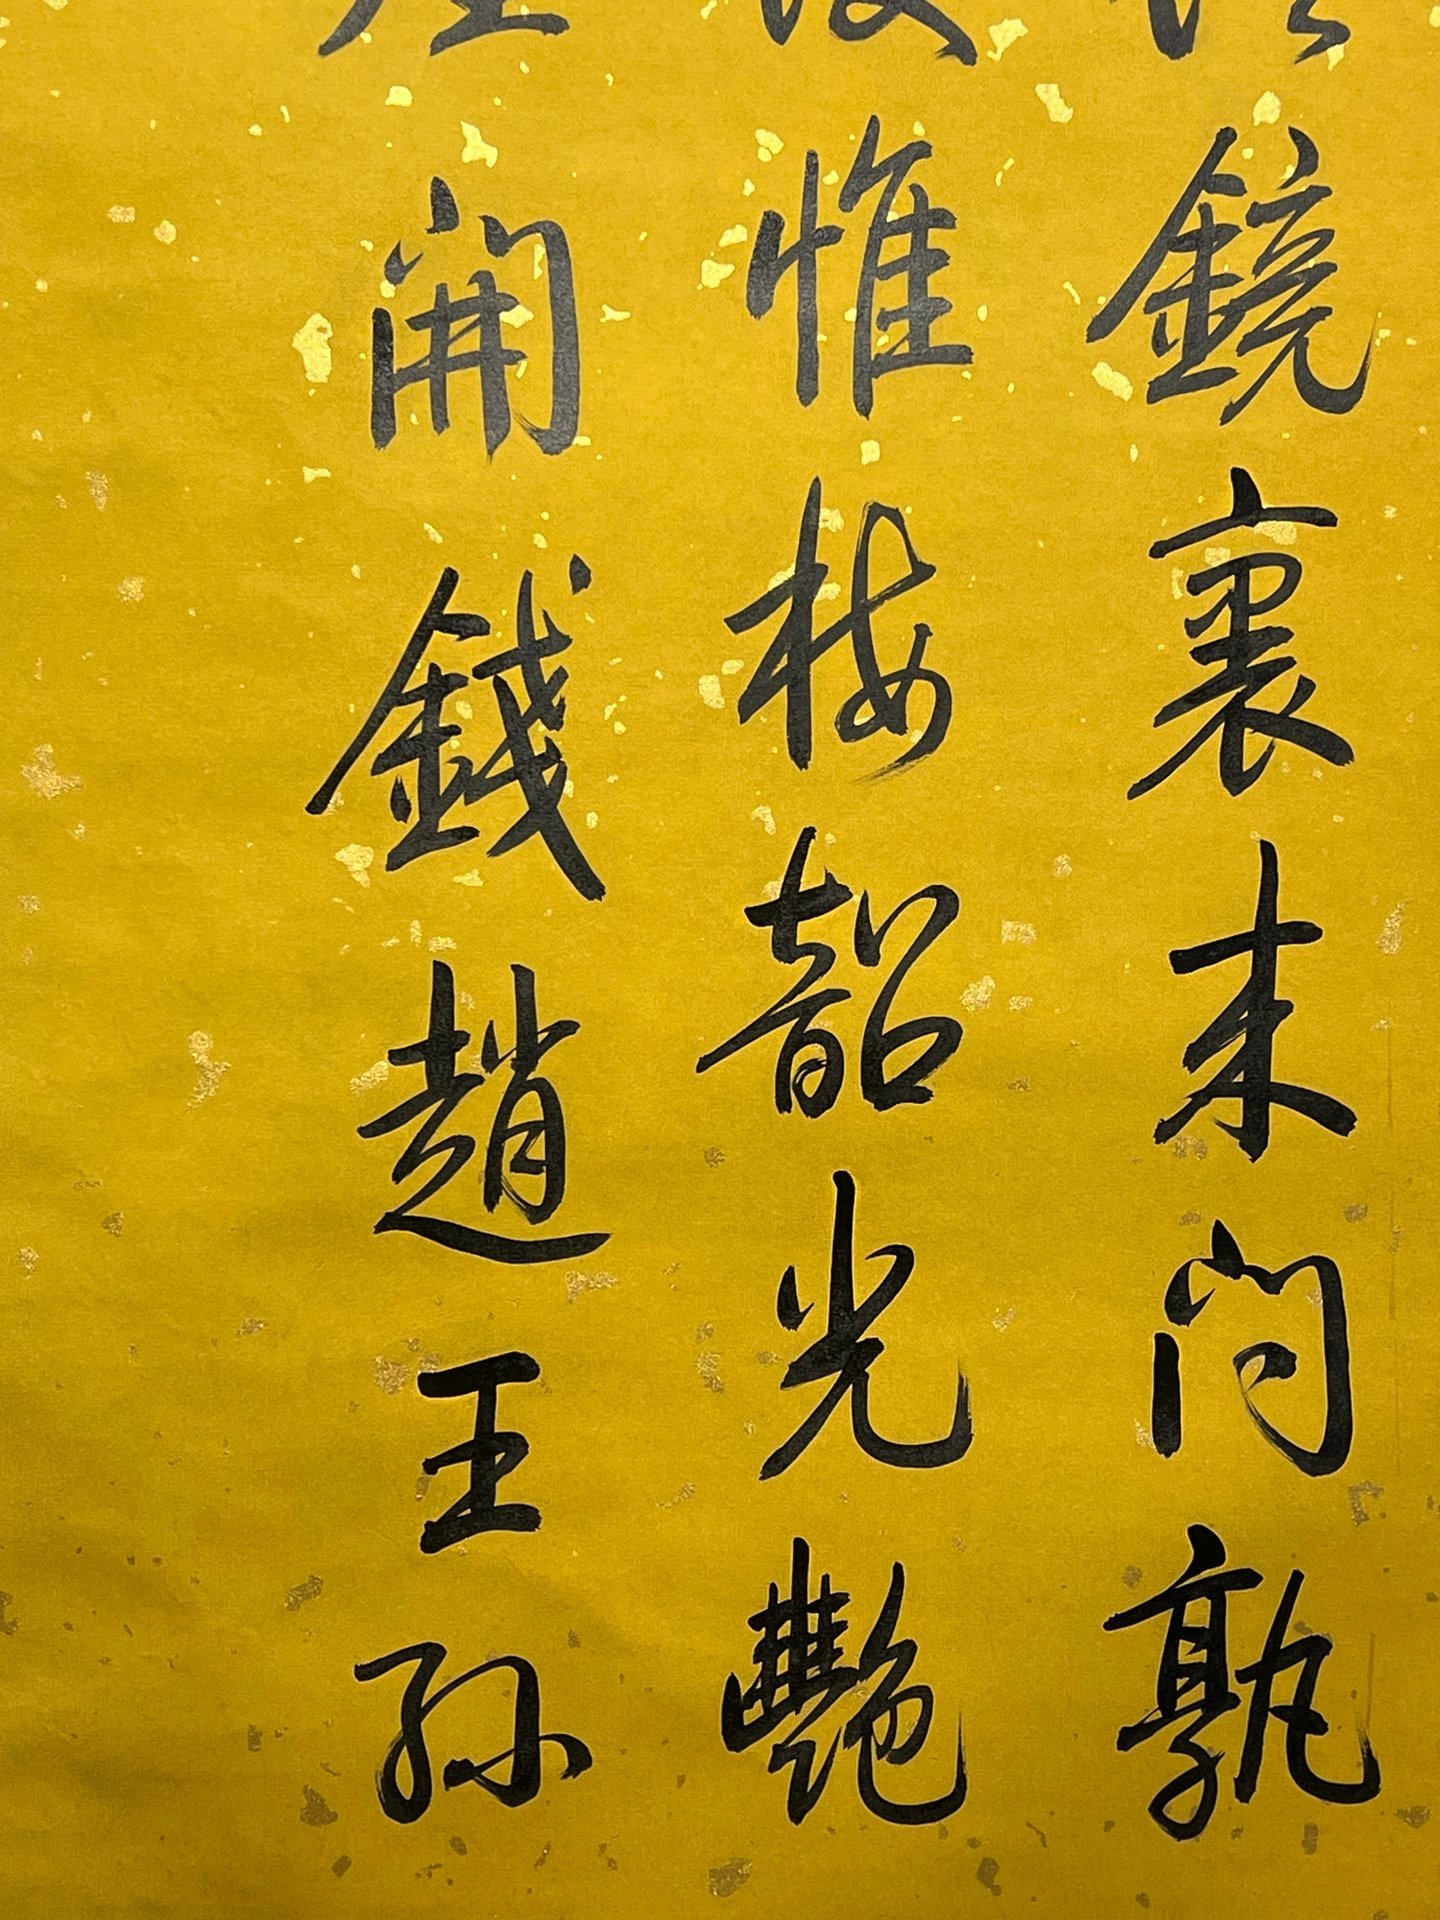 鏡裏未問孰
惟梅韶光艷
開錢趙王孫